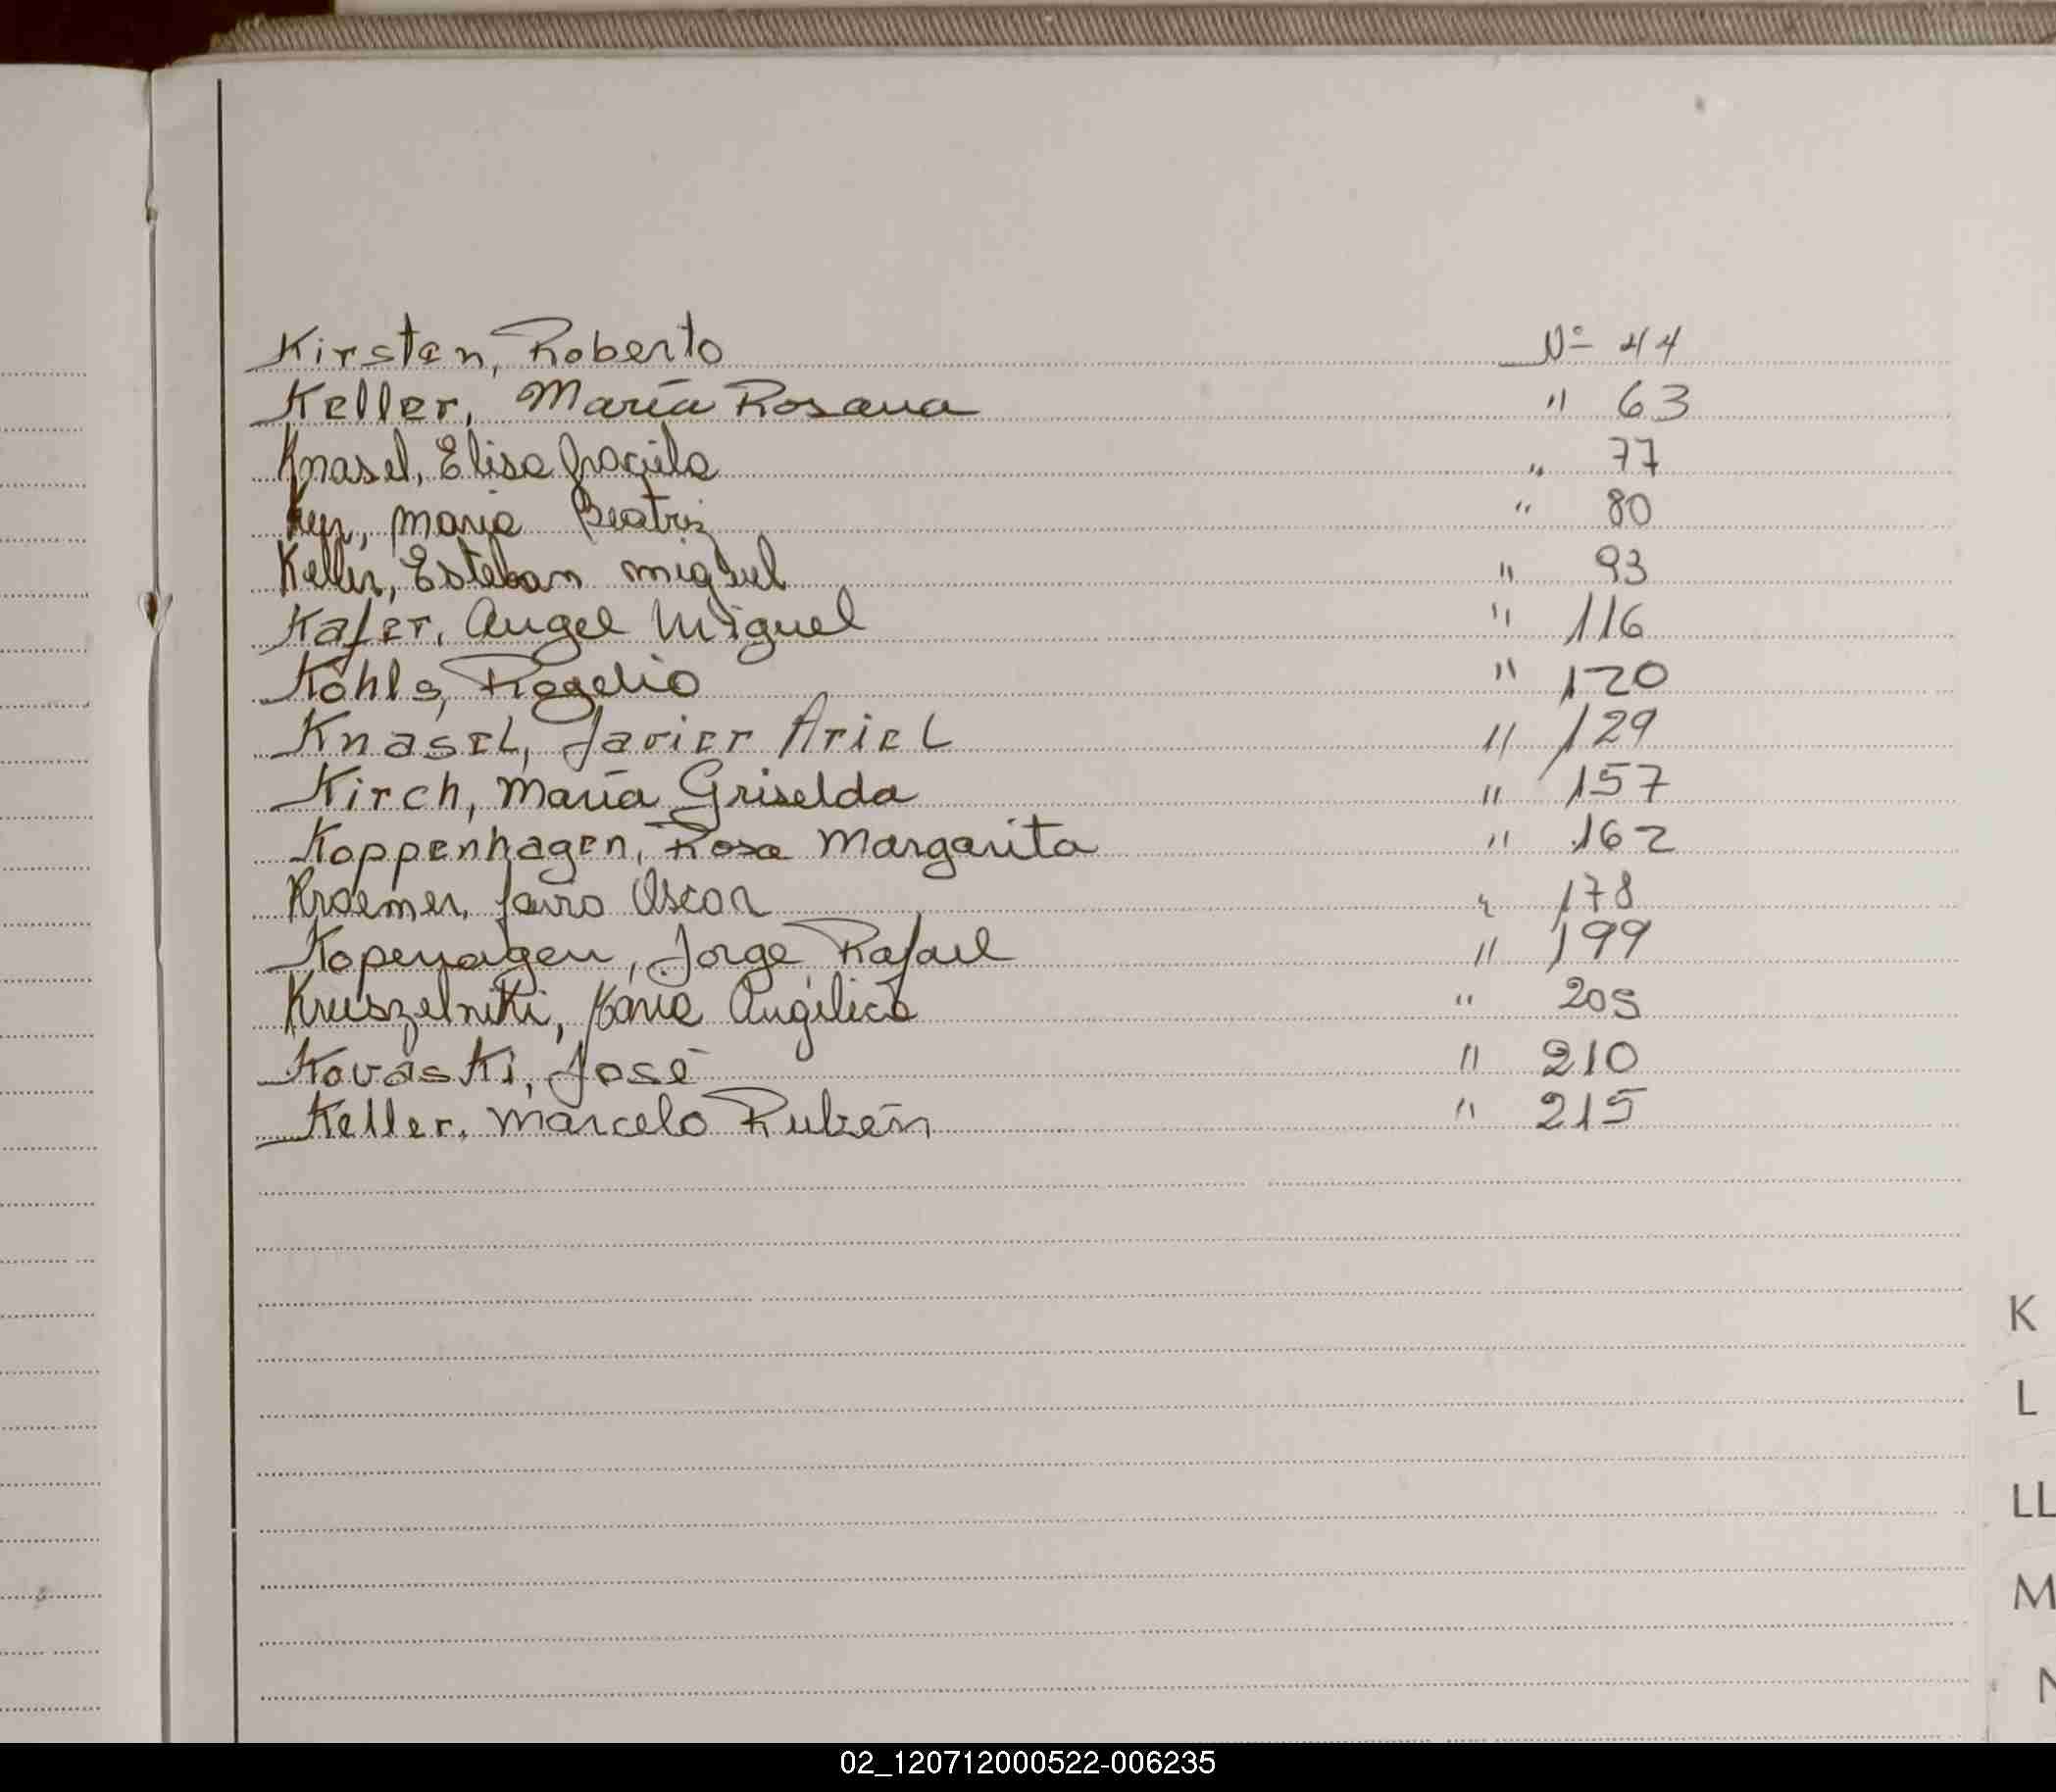 Kirsten, Roberto Nº 44
Keller, María Rosana " 63
Knasel, Elisa Graciela " 77
Maria Beatriz " 80
Keller, Esteban Miguel " 93
Kafer, Angel Miguel " 116
Kohls, Rogelio " 120
Knasel, Javier Ariel " 129
Kirch, María Griselda " 157
Koppenhagen, Rosa Margarita " 162
Kraemer, Jairo Oscar " 178
Kopenagen, Jorge Rafael " 199
Kruszelniki, María Angélica " 205
Kovaski, José " 210
Keller, Marcelo Rubén " 215
K
L
LL
M
N
02_120712000522-006235